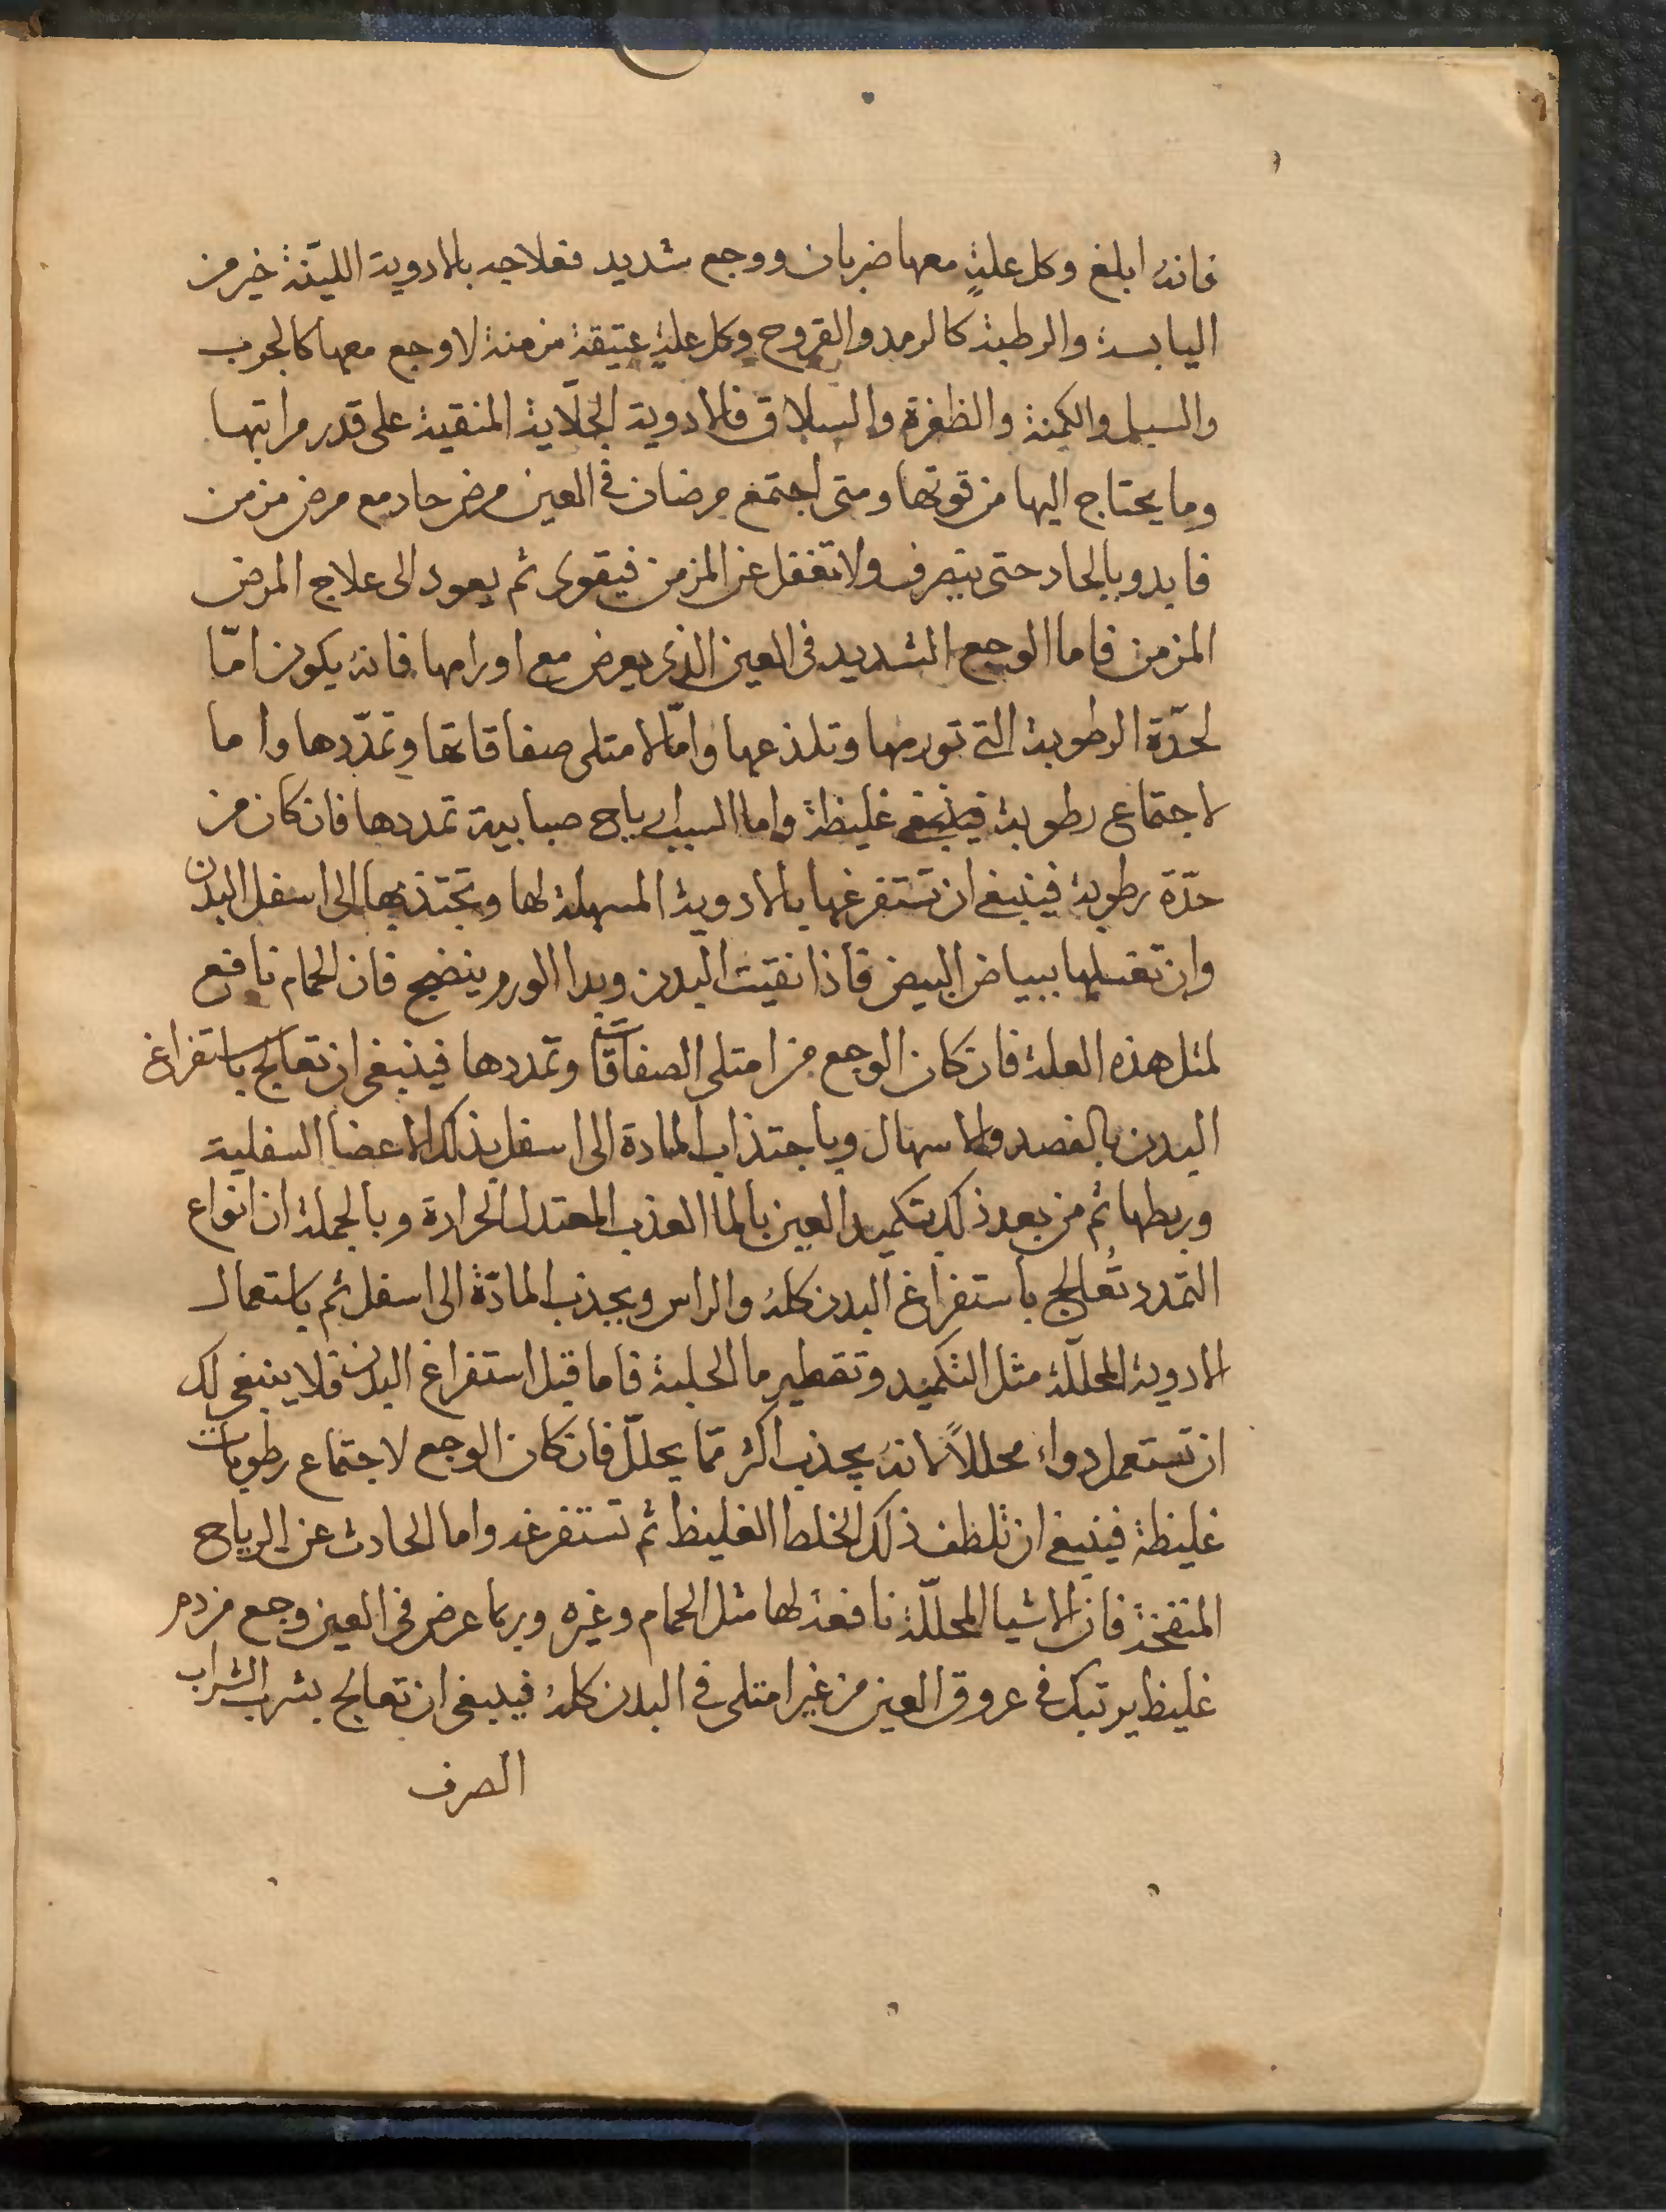 فانه ابلغ وكل علةٍ معها ضربان ووجع شديد فعلاجه بالادوية الليّنة خير من
اليابسة والرطبة كالرمد والقروح وكل علةٍ عتيقة مزمنة لا وجع معها كالجرب
والسبل والكمنة والظفرة والسلاق فالادوية الجلّاية المنقية على قدر مراتبها
وما يحتاج اليها من قوتها ومتى اجتمع مرضان في العين مرض حاد مع مرض مزمن
فابدو بالحاد حتى ينصرف ولا تغفل عن المزمن فيقوى ثم يعود الى علاج المرض
المزمن فاما الوجع الشديد في العين الذي يعرض مع اورامها فانه يكون امّا
لحدّة الرطوبة التي تورمها وتلذعها وامّا لامتلى صفاقاتها وتمدّدها واما
لاجتماع رطوبة غليظة واما السبب رياح ضبابية تمددها فان كان من
حدّة رطوبة فينبغي ان تستفرغها بالادوية المسهلة لها وتجتذبها الى اسفل البدن
وان تغسلها ببياض البيض فاذا نقيت البدن وبدا الورم ينضج فان الحمام نافع
لمثل هذه العلة فان كان الوجع من امتلى الصفاقات وتمددها فينبغي ان تعالج باستفراغ
البدن بالفصد والاسهال وباجتذاب المادة الى اسفل بذلك الاعضا السفلية
وربطها ثم من بعد ذلك بتكميد العين بالما العذب المعتدل الحرارة وبالجملة ان انواع
التمدد تُعالج باستفراغ البدن كله والراس وبجذب المادّة الى اسفل ثم باستعمال
الادوية المحلّلة مثل التكميد وتقطير ما الحلبة فاما قبل استفراغ البدن فلا ينبغي لك
ان تستعمل دواء محللاً لانه يجذب اكثر ممّا يحلّل فان كان الوجع لاجتماع رطوبات
غليظة فينبغي ان تلطف ذلك الخلط الغليظ ثم تستفرغه واما الحادث عن الرياح
المنفخة فان الاشيا المحلّلة نافعة لها مثل الحمام وغيره وربما عرض في العين وجع من دم
غليظ يرتبك في عروق العين من غير امتلى في البدن كله فينبغي ان تعالج بشرب الشراب
الصرف